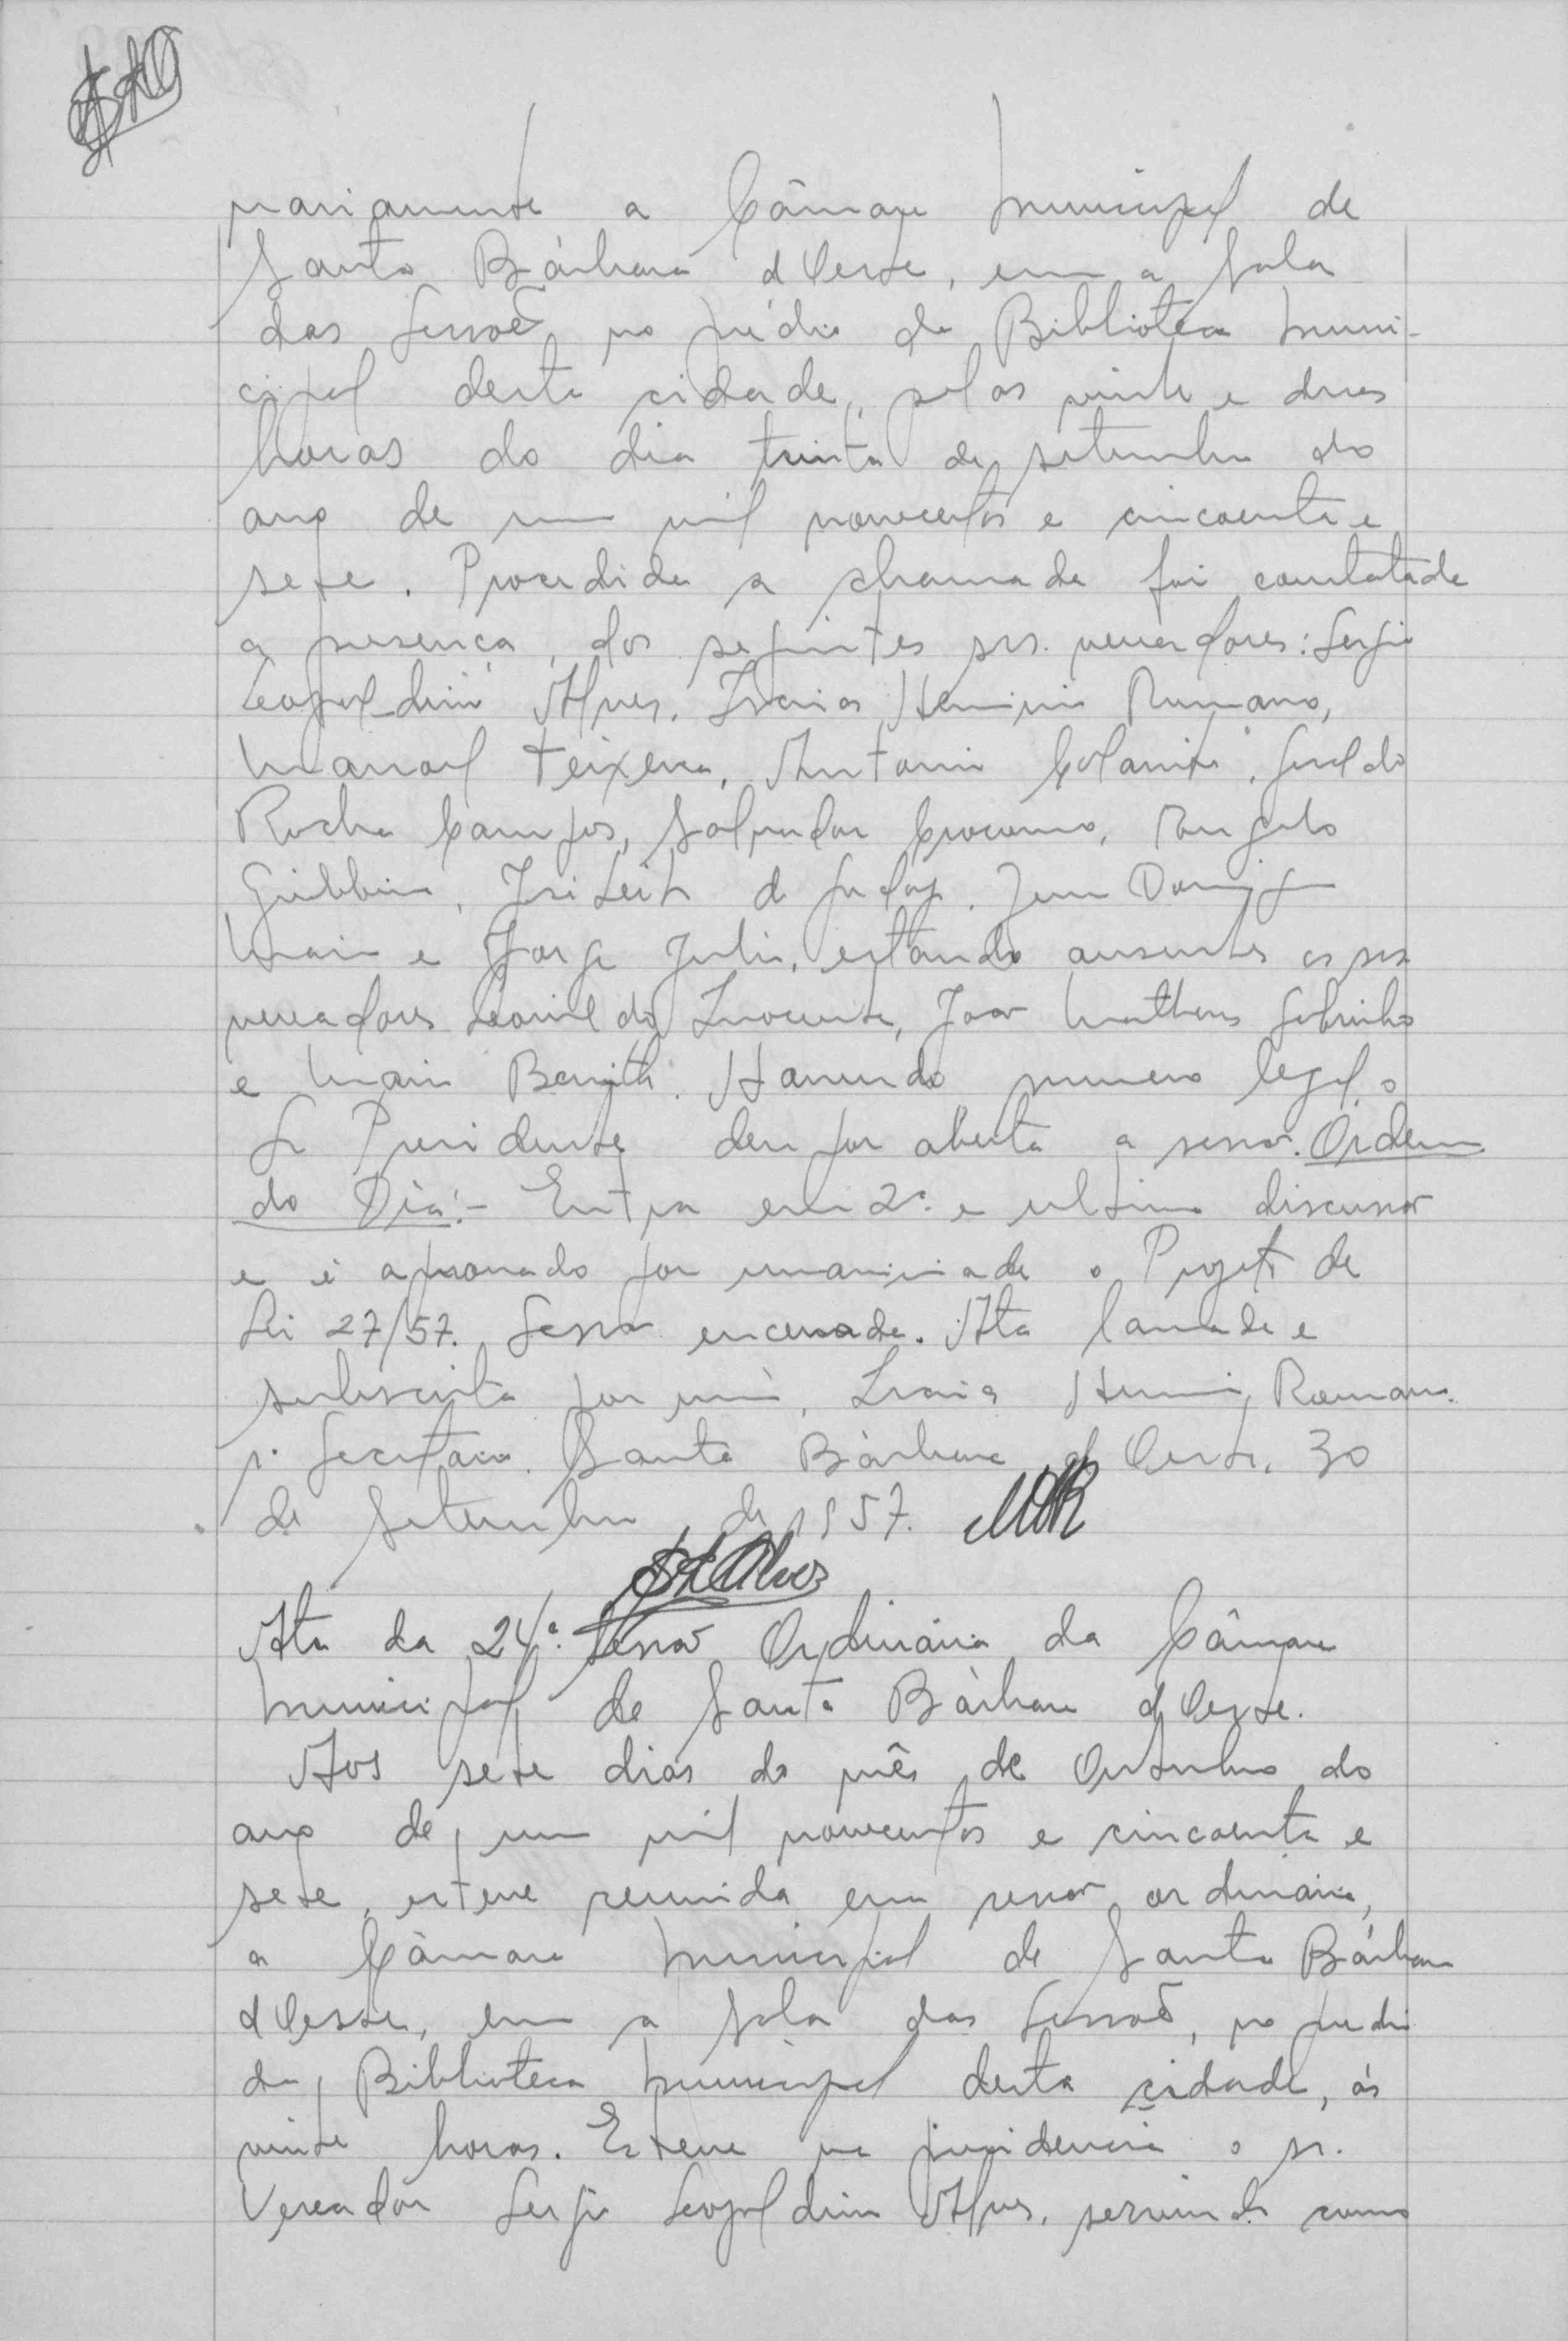 nariamente a Câmara Municipal de
Santa Bárbara d'Oeste, em a Sala
das Sessoẽs, no prédio da Biblioteca Muni-
cipal desta cidade, pelas vinte e duas
horas do dia trinta de setembro do
ano de um mil novecentos e cincoenta e
sete. Procedida a chamada foi constatada
a presença, dos seguintes srs. vereadores: Sergio
Leopoldino Alves, Isaias Herminio Romano,
Manoel Teixeira, Antonio
Rocha Campos, Salvador Angelo
Jorge Julio, estando ausentes os srs
vereadores Leonildo Inocente, João Matheus Sobrinho
e Mario Havendo numero legal, o
Sr Presidente deu por aberta a sessão. Ordem
do Dia:- Entra em 2ª e ultima discussão
e é aprovado por unanimidade o Projeto de
Lei 27/57. Sessão encerrada. Ata lavrada e
subscrita por mim, Isaias Herminio Romano.
1º Secretario. Santa Bárbara d'Oeste, 30
de Setembro de 1957.
Alves
Ata da 24ª. Sessão Ordinária da Câmara
Municipal de Santa Bárbara d'Oeste.
Aos sete dias do mês de Outubro do
ano de um mil novecentos e cincoenta e
sete, esteve reunida em sessão ordinária,
a Câmara Municipal de Santa Bárbara
d'Oeste, em a Sala das Sessoẽs, no predio
da Biblioteca Municipal desta cidade, ás
vinte horas. Esteve na presidencia o sr.
Vereador Sergio Leopoldino Alves, servindo como